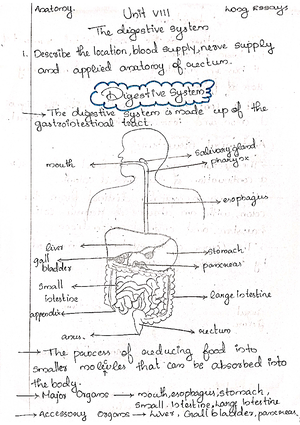 Anatomy.
Unit VIII
Long Essays
The digestive system
1. Describe the location, blood supply, nerve supply
and applied anatomy of rectum.
Digestive System
→ The digestive system is made up of the
gastrointestinal tract.
salivary gland
mouth
pharynx
esophagus
liver
stomach
gall
bladder
pancreas
small
intestine
large intestine
appendix
rectum
anus
→ The process of reducing food into
smaller molecules that can be absorbed into
the body.
→ Major Organs → mouth, esophagus, stomach,
Small intestine, Large Intestine
→ Accessory Organs → Liver, Gall bladder, pancreas,